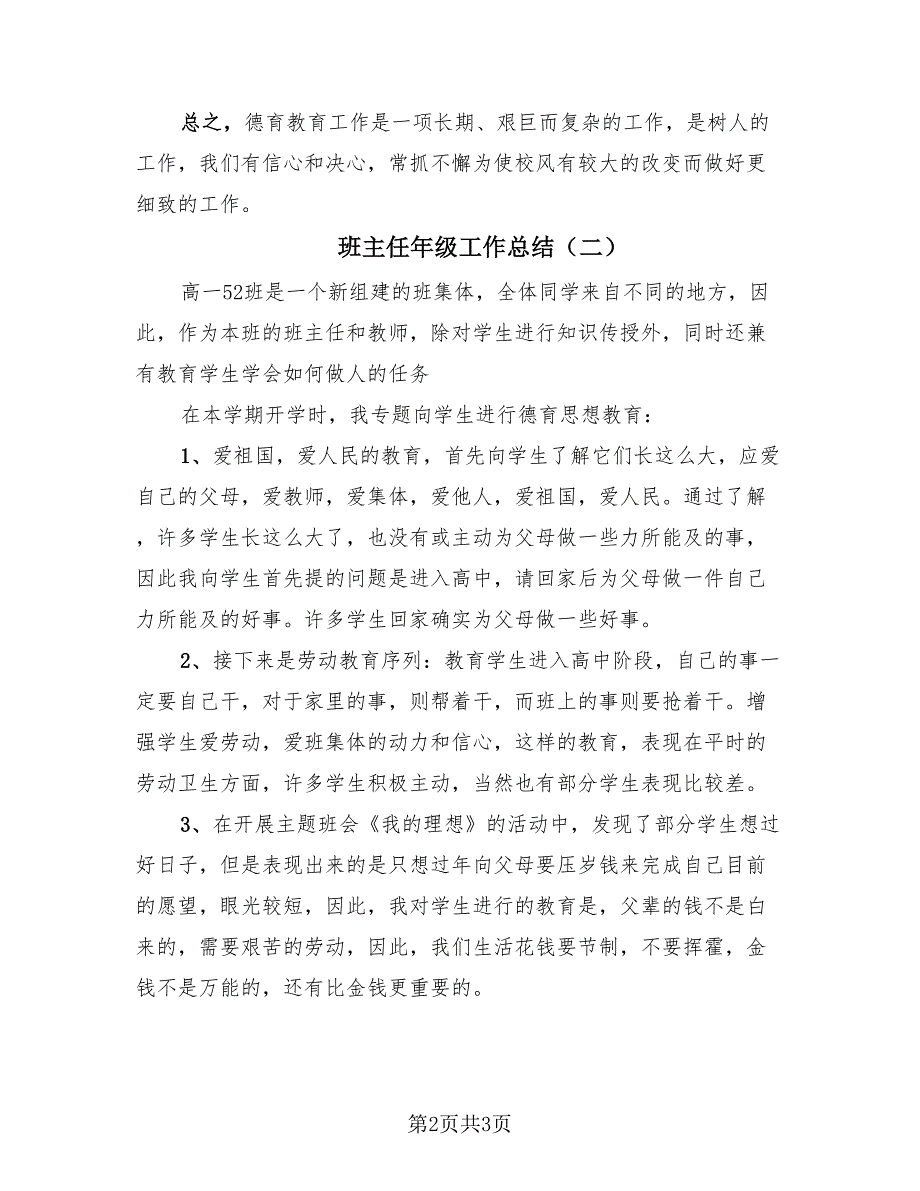 总之，德育教育工作是一项长期、艰巨而复杂的工作，是树人的
工作，我们有信心和决心，常抓不懈为使校风有较大的改变而做好更
细致的工作。
班主任年级工作总结（二）
高一52班是一个新组建的班集体，全体同学来自不同的地方，因
此，作为本班的班主任和教师，除对学生进行知识传授外，同时还兼
有教育学生学会如何做人的任务
在本学期开学时，我专题向学生进行德育思想教育：
1、爱祖国，爱人民的教育，首先向学生了解它们长这么大，应爱
自己的父母，爱教师，爱集体，爱他人，爱祖国，爱人民。通过了解
，许多学生长这么大了，也没有或主动为父母做一些力所能及的事，
因此我向学生首先提的问题是进入高中，请回家后为父母做一件自己
力所能及的好事。许多学生回家确实为父母做一些好事。
2、接下来是劳动教育序列：教育学生进入高中阶段，自己的事一
定要自己干，对于家里的事，则帮着干，而班上的事则要抢着干。增
强学生爱劳动，爱班集体的动力和信心，这样的教育，表现在平时的
劳动卫生方面，许多学生积极主动，当然也有部分学生表现比较差。
3、在开展主题班会《我的理想》的活动中，发现了部分学生想过
好日子，但是表现出来的是只想过年向父母要压岁钱来完成自己目前
的愿望，眼光较短，因此，我对学生进行的教育是，父辈的钱不是白
来的，需要艰苦的劳动，因此，我们生活花钱要节制，不要挥霍，金
钱不是万能的，还有比金钱更重要的。
第2页共3页